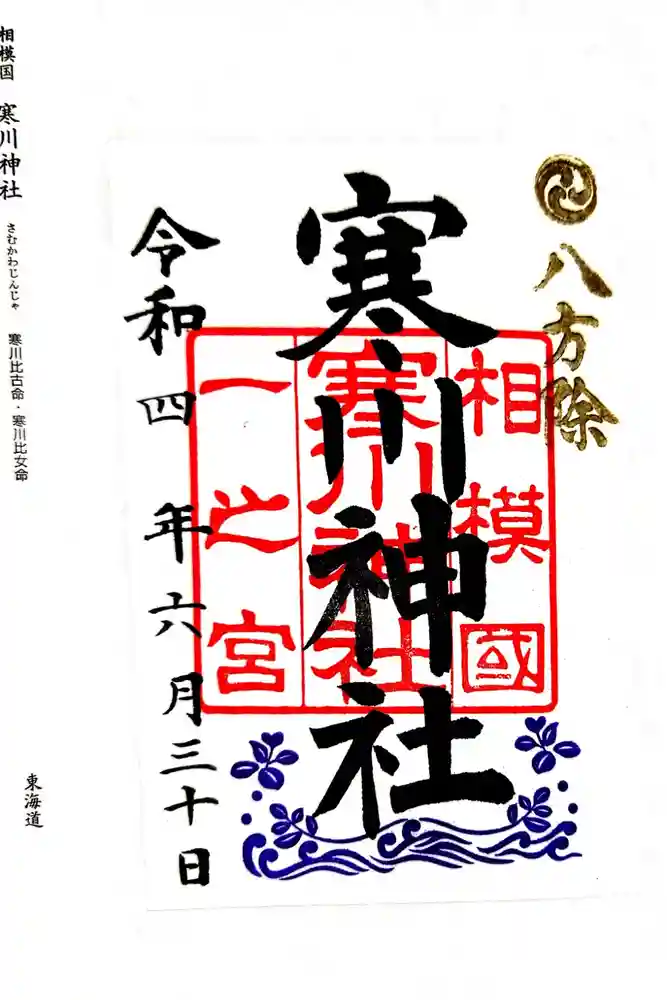 八方除
寒川神社
相模國
寒川神社
一之宮
令和四年六月三十日
相模国 寒川神社 さむかわじんじゃ 寒川比古命・寒川比女命
東海道